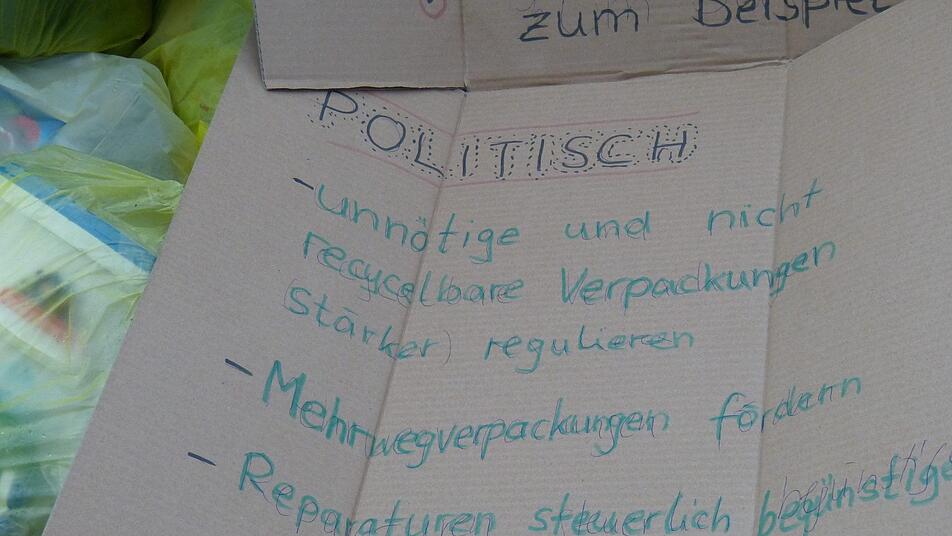 zum Beispiel
POLITISCH
- unnötige und nicht
recycelbare Verpackungen
(stärker) regulieren
- Mehrwegverpackungen fördern
- Reparaturen steuerlich begünstige